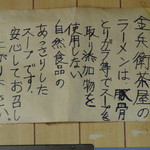 金兵衛茶屋の
ラーメンは豚骨
とりガラ等でスープを
取り添加物を
使用しない
自然食品の
あっさりした
スープです。
安心してお召し
上がり下さい。